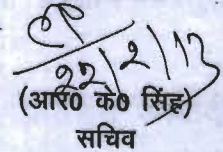 22/2/13
(आर0 के0 सिंह)
सचिव